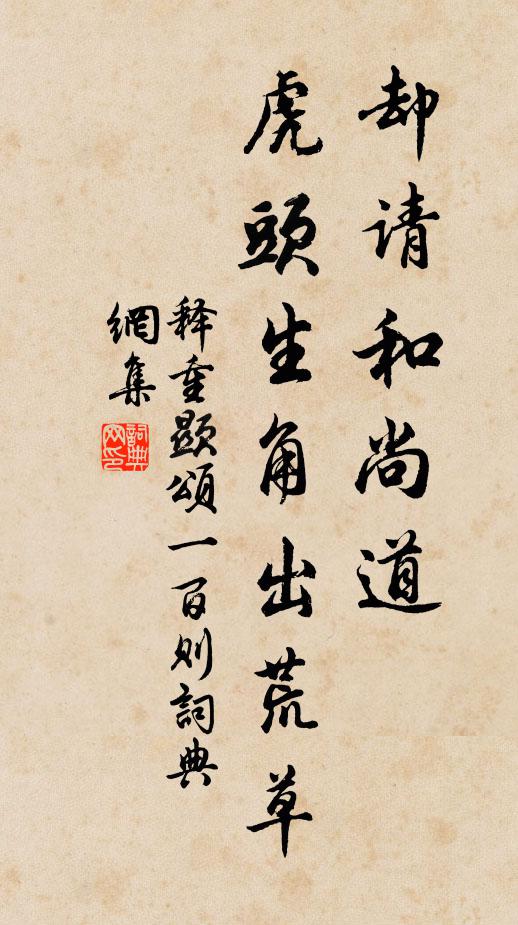 却请和尚道
虎頭生角出荒草
释重顯頌一百则詞典
網集
詞典
网印